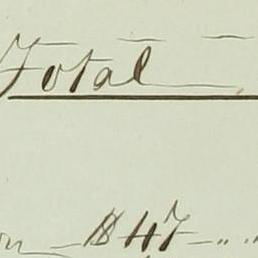 Total
$47